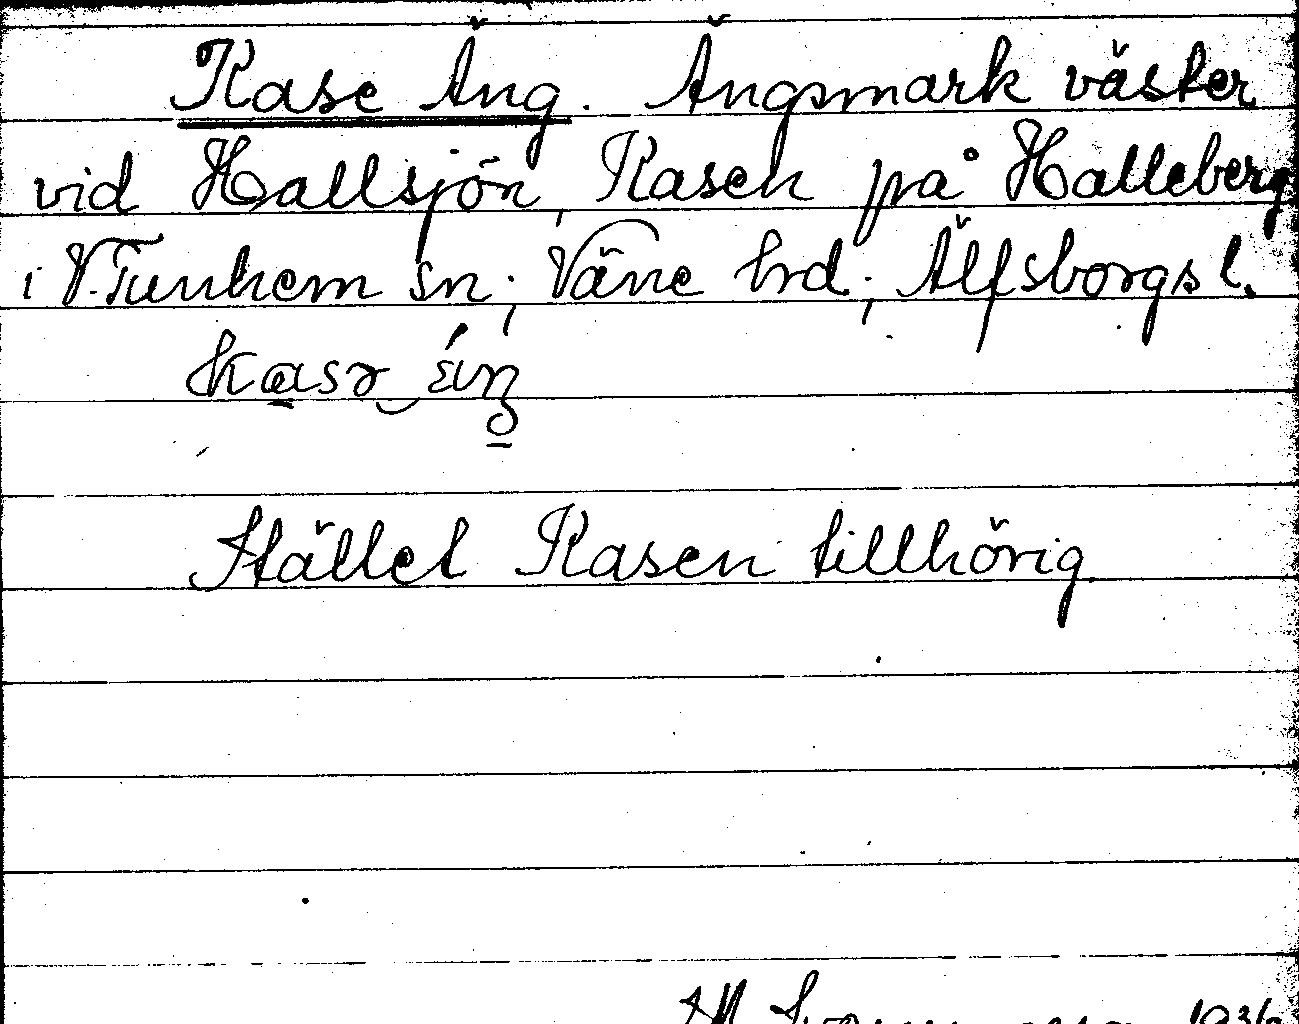 Kase Äng. Ängsmark väster
vid Hallsjön, Kasen på Halleberg
i V. Tunhem sn; Väne hrd; Älfsborgs l.
Stället Kasen tillhörig